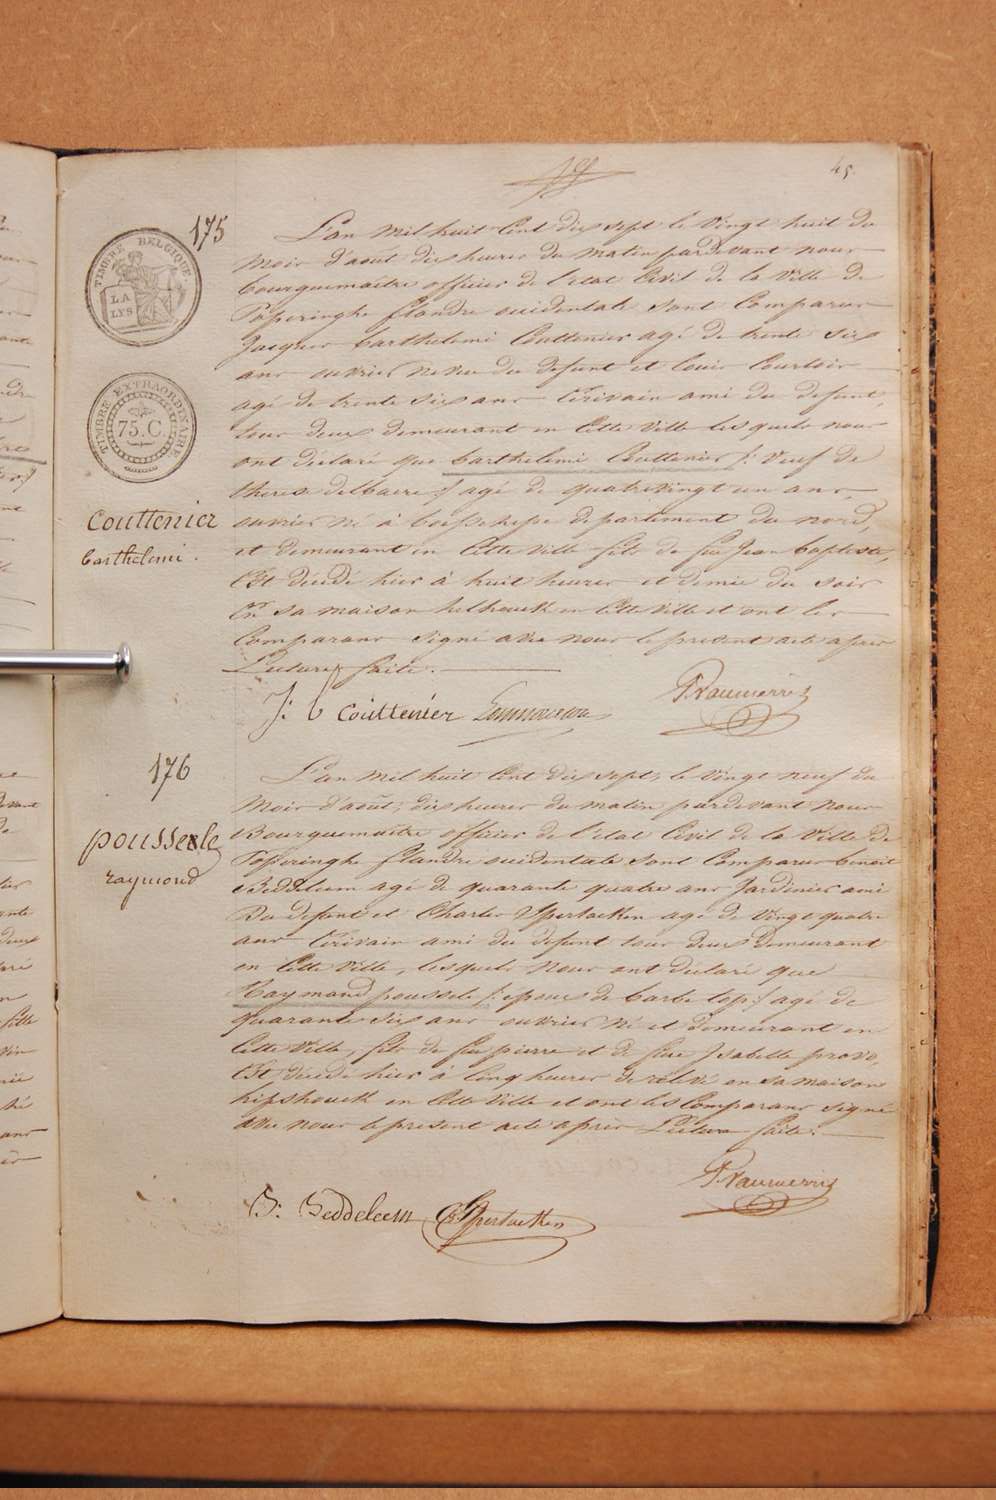 45.
175
TIMBRE BELGIQUE
LA
LYS
TIMBRE EXTRAORDINAIRE
75.C.
Couttenier
barthelemi.
L'an mil huit Cent dix sept le vingt huit du
mois d'août dix heures du matin pardevant nous
bourguemaître officier de l'etat Civil de la Ville de
Poperinghe flandre occidentale sont Comparus
Jacques barthelemi Couttenier agé de trente six
ans ouvrier neveu du defunt et louis Courtois
agé de trente six ans Ecrivain ami du defunt,
tous deux demeurant en Cette Ville lesquels nous
ont déclaré que barthelemi Couttenier /: veuf de
therese delbaere :/ agé de quatrevingt un ans,
ouvrier né à boeschepe departement du nord,
et demeurant en Cette Ville fils de feu Jean baptiste,
Est décédé hier à huit heures et demie du soir
En sa maison helhouck en Cette Ville et ont les
Comparans signé avec nous le present acte apres
Lecture faite.
J: b Couttenier
176
pousseele
raymond
L'an mil huit Cent dix sept, le vingt neuf du
mois d'août, dix heures du matin pardevant nous
Bourguemaître officier de l'etat Civil de la Ville de
Poperinghe flandre occidentale sont Comparus benoit
Beddeleem agé de quarante quatre ans Jardinier ami
Du defunt et Charles Spertaeken agé de Vingt quatre
ans Ecrivain ami du defunt tous deux Demeurant
en Cette Ville, lesquels nous ont déclaré que
Raymond poussele /: epoux de barbe top :/ agé de
quarante six ans ouvrier né et demeurant en
Cette Ville, fils de feu pierre et de feue Isabelle provo,
Est décédé hier à Cinq heures de relevé en sa maison
hipshouck en Cette Ville et ont les Comparans signé
avec nous le present acte apres Lecture faite.
B: Beddeleem Spertaeken